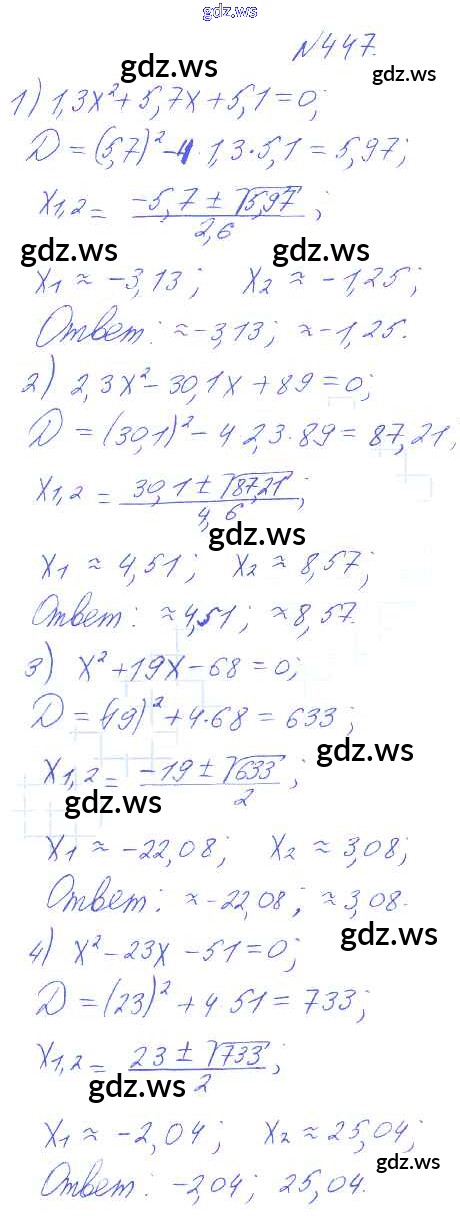 gdz.ws
N447.
gdz.ws
1) 1,3x²+5,7x+5,1=0;
D=(5,7)²-4·1,3·5,1=5,97;
x1,2= (-5,7±√5,97)/2,6;
gdz.ws gdz.ws
x1≈-3,13; x2≈-1,25;
Ответ: ≈-3,13; ≈-1,25.
2) 2,3x²-30,1x+89=0;
D=(30,1)²-4 2,3·89=87,21;
gdz.ws
x1,2= (30,1±√87,21)/4,6;
gdz.ws
x1≈4,51; x2≈8,57;
Ответ: ≈4,51; ≈8,57.
3) x²+19x-68=0;
D=(19)²+4·68=633;
gdz.ws
x1,2= (-19±√633)/2;
gdz.ws
x1≈-22,08; x2≈3,08;
Ответ: ≈-22,08; ≈3,08.
gdz.ws
4) x²-23x-51=0;
D=(23)²+4·51=733;
x1,2= (23±√733)/2;
gdz.ws
x1≈-2,04; x2≈25,04;
gdz.ws
Ответ: -2,04; 25,04.
gdz.ws